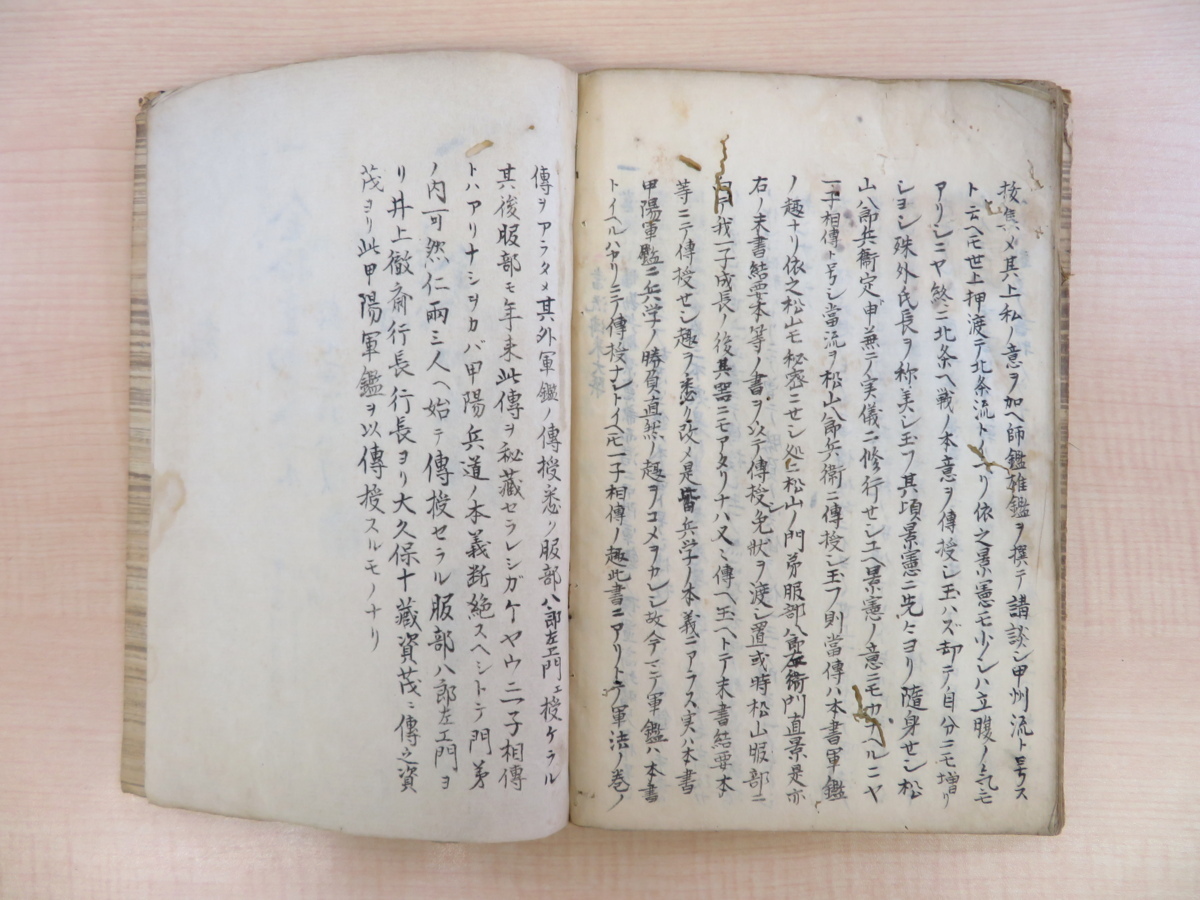 按集メ其上私ノ意ヲ加ヘ師鑑雄鑑ヲ撰テ講談シ甲州流ト号ス
ト云ヘモ世上押渡テ北条流トイヘリ依之景憲モ少シハ立腹ノ気モ
アリシニヤ終ニ北条ヘ戦ノ本意ヲ傳授シ玉ハズ却テ自分ニモ増リ
シヨシ殊外氏長ヲ称美シ玉フ其頃景憲ニ先々ヨリ隨身セシ松
山八郎兵衛定申兼テ実儀ニ修行セシユヘ景憲ノ意ニモカナヘルニヤ
一子相傳ト号シ當流ヲ松山八郎兵衛ニ傳授シ玉フ則當傳ハ本書軍鑑
ノ趣ナリ依之松山モ秘密ニセシ処ニ松山ノ門弟服部八郎左衛門直景是亦
右ノ末書結要本等ノ書ヲ以テ傳授シ免状ヲ渡シ置或時松山服部ニ
我一子成長ノ後其器ニモアタリナハ又々傳ヘ玉ヘトテ末書結要本
等ニテ傳授セシ趣ヲ悉ク改メ是皆兵学ノ本義ニアラス実ハ本書
甲陽軍鑑ニ兵学ノ勝負直然ノ趣ヲコメヲカレシ故今ニテ軍鑑ハ本書
トイヘルハヤリニテ傳授ナシトイヘモ一子相傳ノ趣此書ニアリトテ軍法ノ巻ノ
傳ヲアラタメ其外軍鑑ノ傳授悉ク服部八郎左エ門エ授ケラル
其後服部モ年来此傳ヲ秘蔵セラレシガケヤウニ一子相傳
トハアリナシヲカバ甲陽兵道ノ本義断絶スヘシトテ門弟
ノ内可然仁両三人ヘ始テ傳授セラル服部八郎左エ門ヨ
リ井上徹斎行長行長ヨリ大久保十蔵資茂ニ傳之資
茂ヨリ此甲陽軍鑑ヲ以傳授スルモノナリ